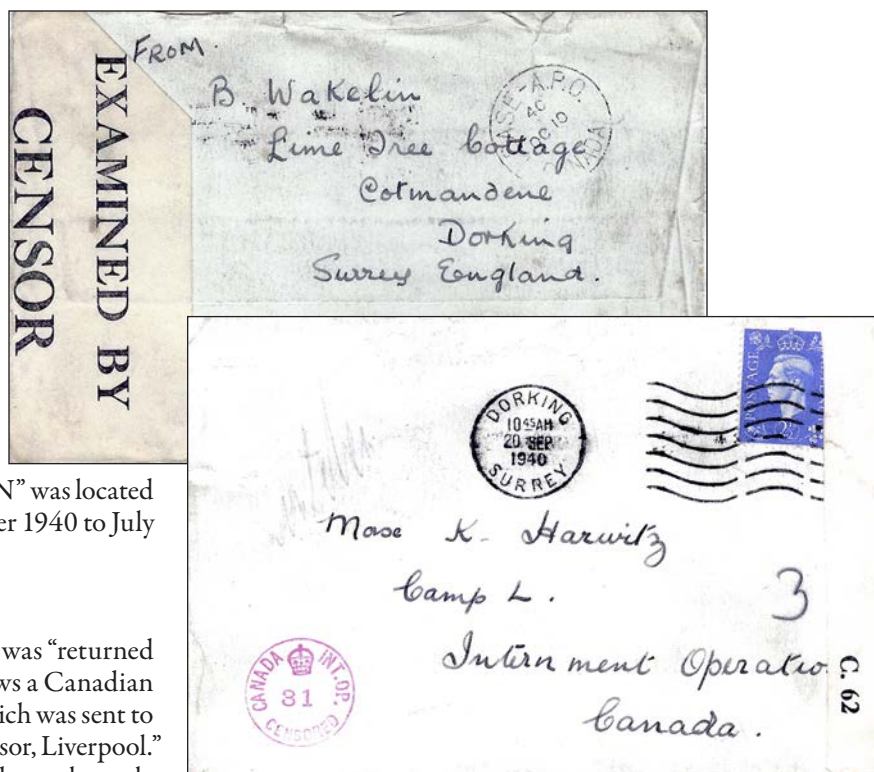 FROM.
B. Wakelin
Lime Tree Cottage
Cotmandene
Dorking
Surrey England.
BASE-A.P.O.
10
CANADA
EXAMINED BY
CENSOR
DORKING
10 45 AM
20 SEP
1940
SURREY
POSTAGE
K. Harwitz
Camp L.
Internment Operatio
Canada.
3
C. 62
CANADA INT. OP.
31
CENSORED
N” was located
er 1940 to July
was “returned
ws a Canadian
ich was sent to
sor, Liverpool.”